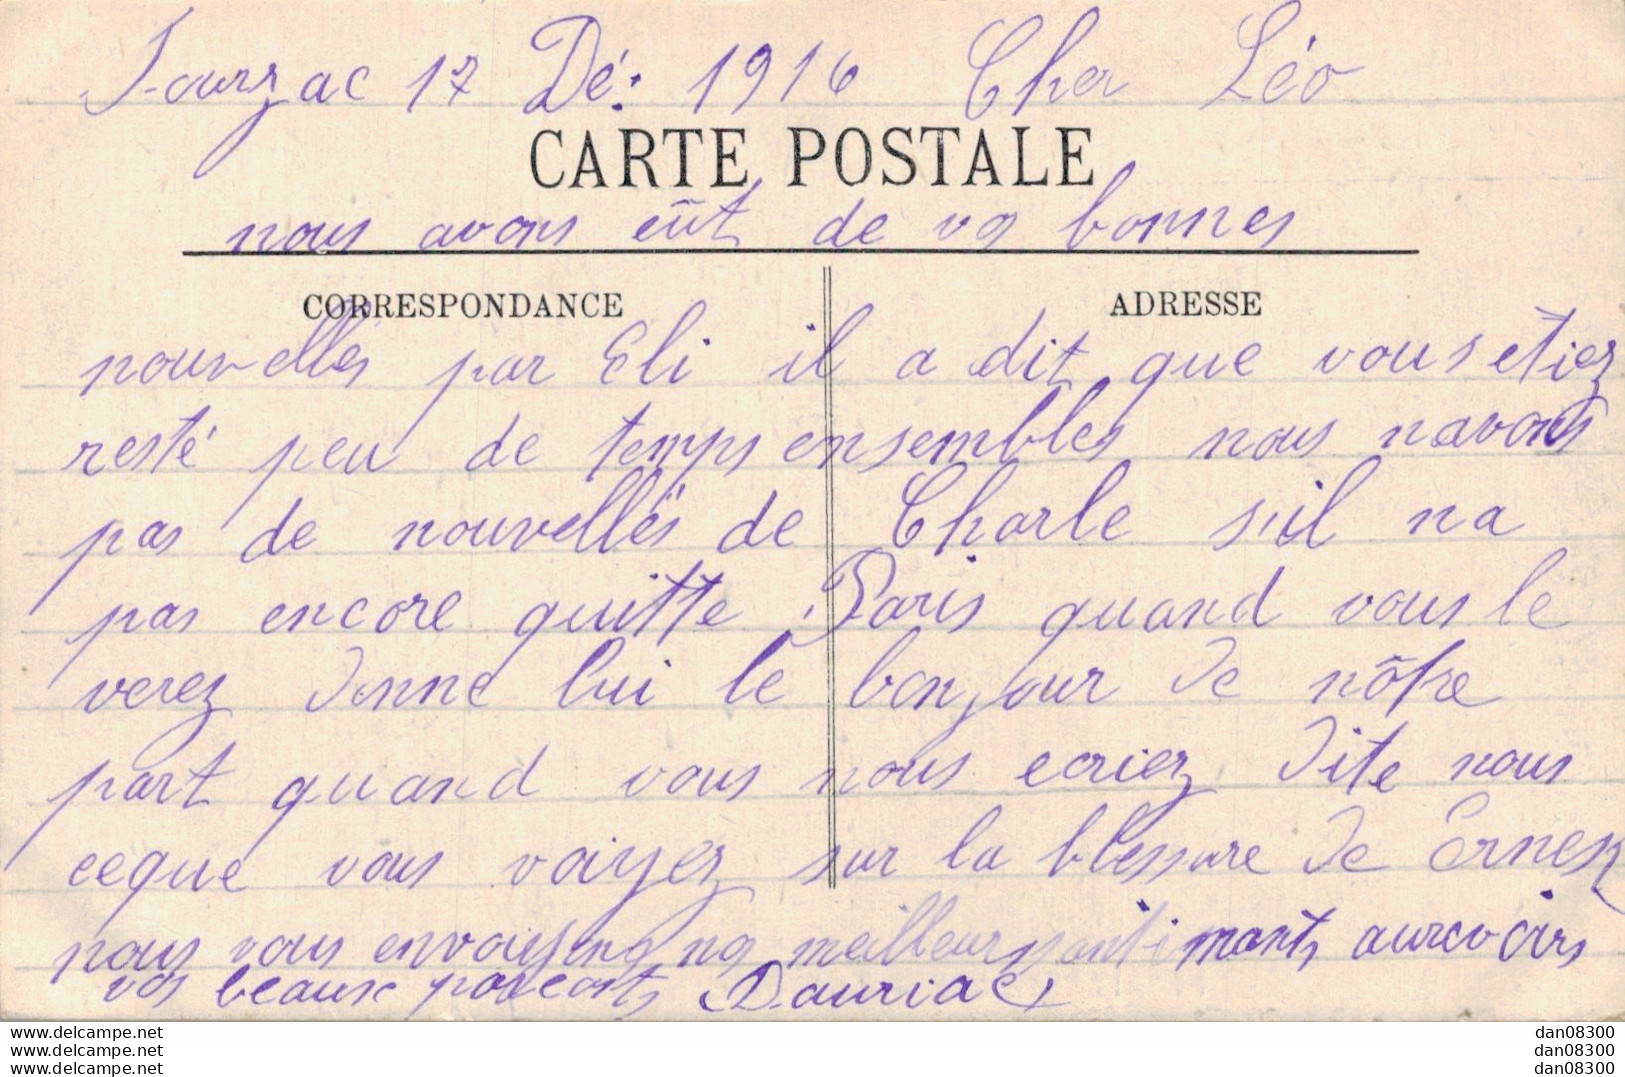 Jourzac 17 Dé: 1916 Cher Léo
CARTE POSTALE
nous avons eût de vos bonnes
CORRESPONDANCE
ADRESSE
nouvellés par Eli il a dit que vous etiez
resté peu de temps ensembles nous navons
pas de nouvellés de Charle s'il na
pas encore quitte Paris quand vous le
verez donne lui le bonjour de nôtre
part quand vous nous ecriez dite nous
ceque vous voiyez sur la blessure de Ernest
nous vous envoiyons nos meilleurs santimants aurevoirs
vos beaux parents Dauriac
www.delcampe.net
www.delcampe.net
www.delcampe.net
dan08300
dan08300
dan08300